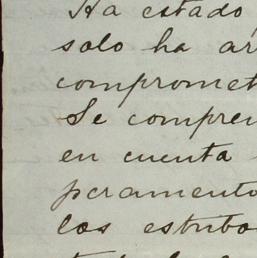 Ha estado
solo ha ar
compromet
Se compren
en cuenta
peramento
los estribo